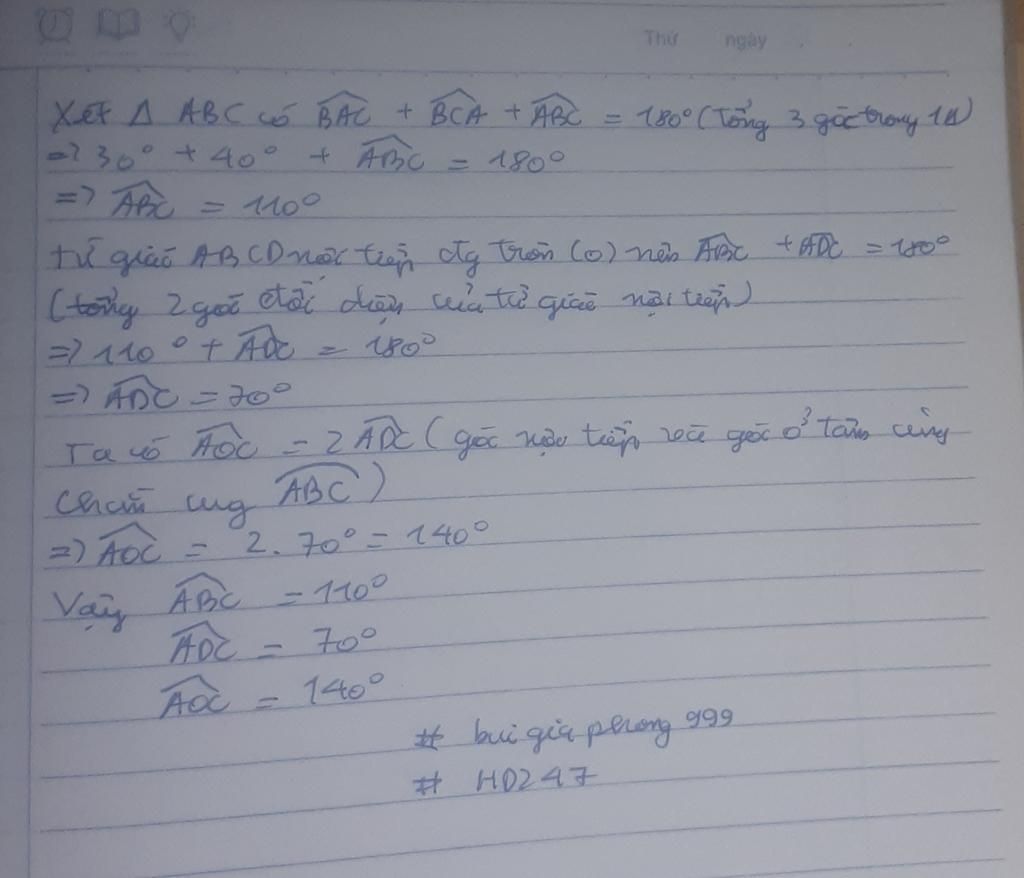 Thứ ngày
Xét Δ ABC có \widehat{BAC} + \widehat{BCA} + \widehat{ABC} = 180° (Tổng 3 góc trong 1Δ)
=> 30° + 40° + \widehat{ABC} = 180°
=> \widehat{ABC} = 110°
tứ giác ABCD nội tiếp đg tròn (O) nên \widehat{ABC} + \widehat{ADC} = 180°
(tổng 2 góc đối diện của tứ giác nội tiếp)
=> 110° + \widehat{ADC} = 180°
=> \widehat{ADC} = 70°
Ta có \widehat{AOC} = 2\widehat{ADC} (góc nội tiếp và góc ở tâm cùng
chắn cug \widehat{ABC})
=> \widehat{AOC} = 2.70° = 140°
Vậy \widehat{ABC} = 110°
\widehat{ADC} = 70°
\widehat{AOC} = 140°
# bui gia phong 999
# HD247